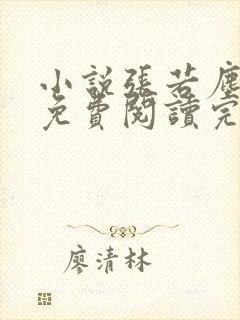 小說張若塵
免費閱讀完
廖清林